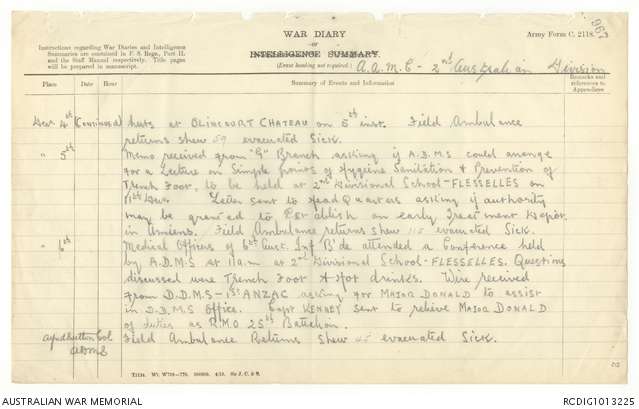 WAR DIARY
or
INTELLIGENCE SUMMARY.
(Erase heading not required.)
Army Form C. 2118.
967
Instructions regarding War Diaries and Intelligence
Summaries are contained in F. S. Regs., Part II.
and the Staff Manual respectively. Title pages
will be prepared in manuscript.
A.A.M.C - 2nd Australian Division
Place Date Hour Summary of Events and Information Remarks and references to Appendices
Dec 4th (Continued) huts at OLINCOURT CHATEAU on 5th inst. Field Ambulance
returns shew 59 evacuated Sick.
" 5th Memo received from "G" Branch asking if A.D.M.S could arrange
for a Lecture on Simple points of Hygiene Sanitation & Prevention of
Trench Foot, to be held at 2nd Divisional School-FLESSELLES on
11th Dec. Letter sent to Head Quarters asking if authority
may be granted to Establish an early Treatment Depot
in Amiens. Field Ambulance returns shew 115 evacuated Sick.
" 6th Medical Officers of 6th Aust. Inf B'de attended a Conference held
by A.D.M.S at 11am. at 2nd Divisional School-FLESSELLES. Questions
discussed were Trench Foot & Hot drinks. Wire received
from D.D.M.S-1st ANZAC asking for MAJOR DONALD to assist
in D.D.M.S Office. Capt KENNEY sent to relieve MAJOR DONALD
of duties as R.M.O 25th Battalion.
Field Ambulance Returns shew 45 evacuated Sick.
Col
ADMS
T2134. Wt. W708—776. 500000. 4/15. Sir J. C. & S.
AUSTRALIAN WAR MEMORIAL
RCDIG1013225